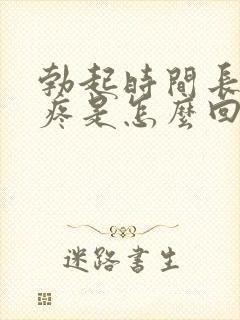 勃起時間長
疼是怎麼回
迷路書生